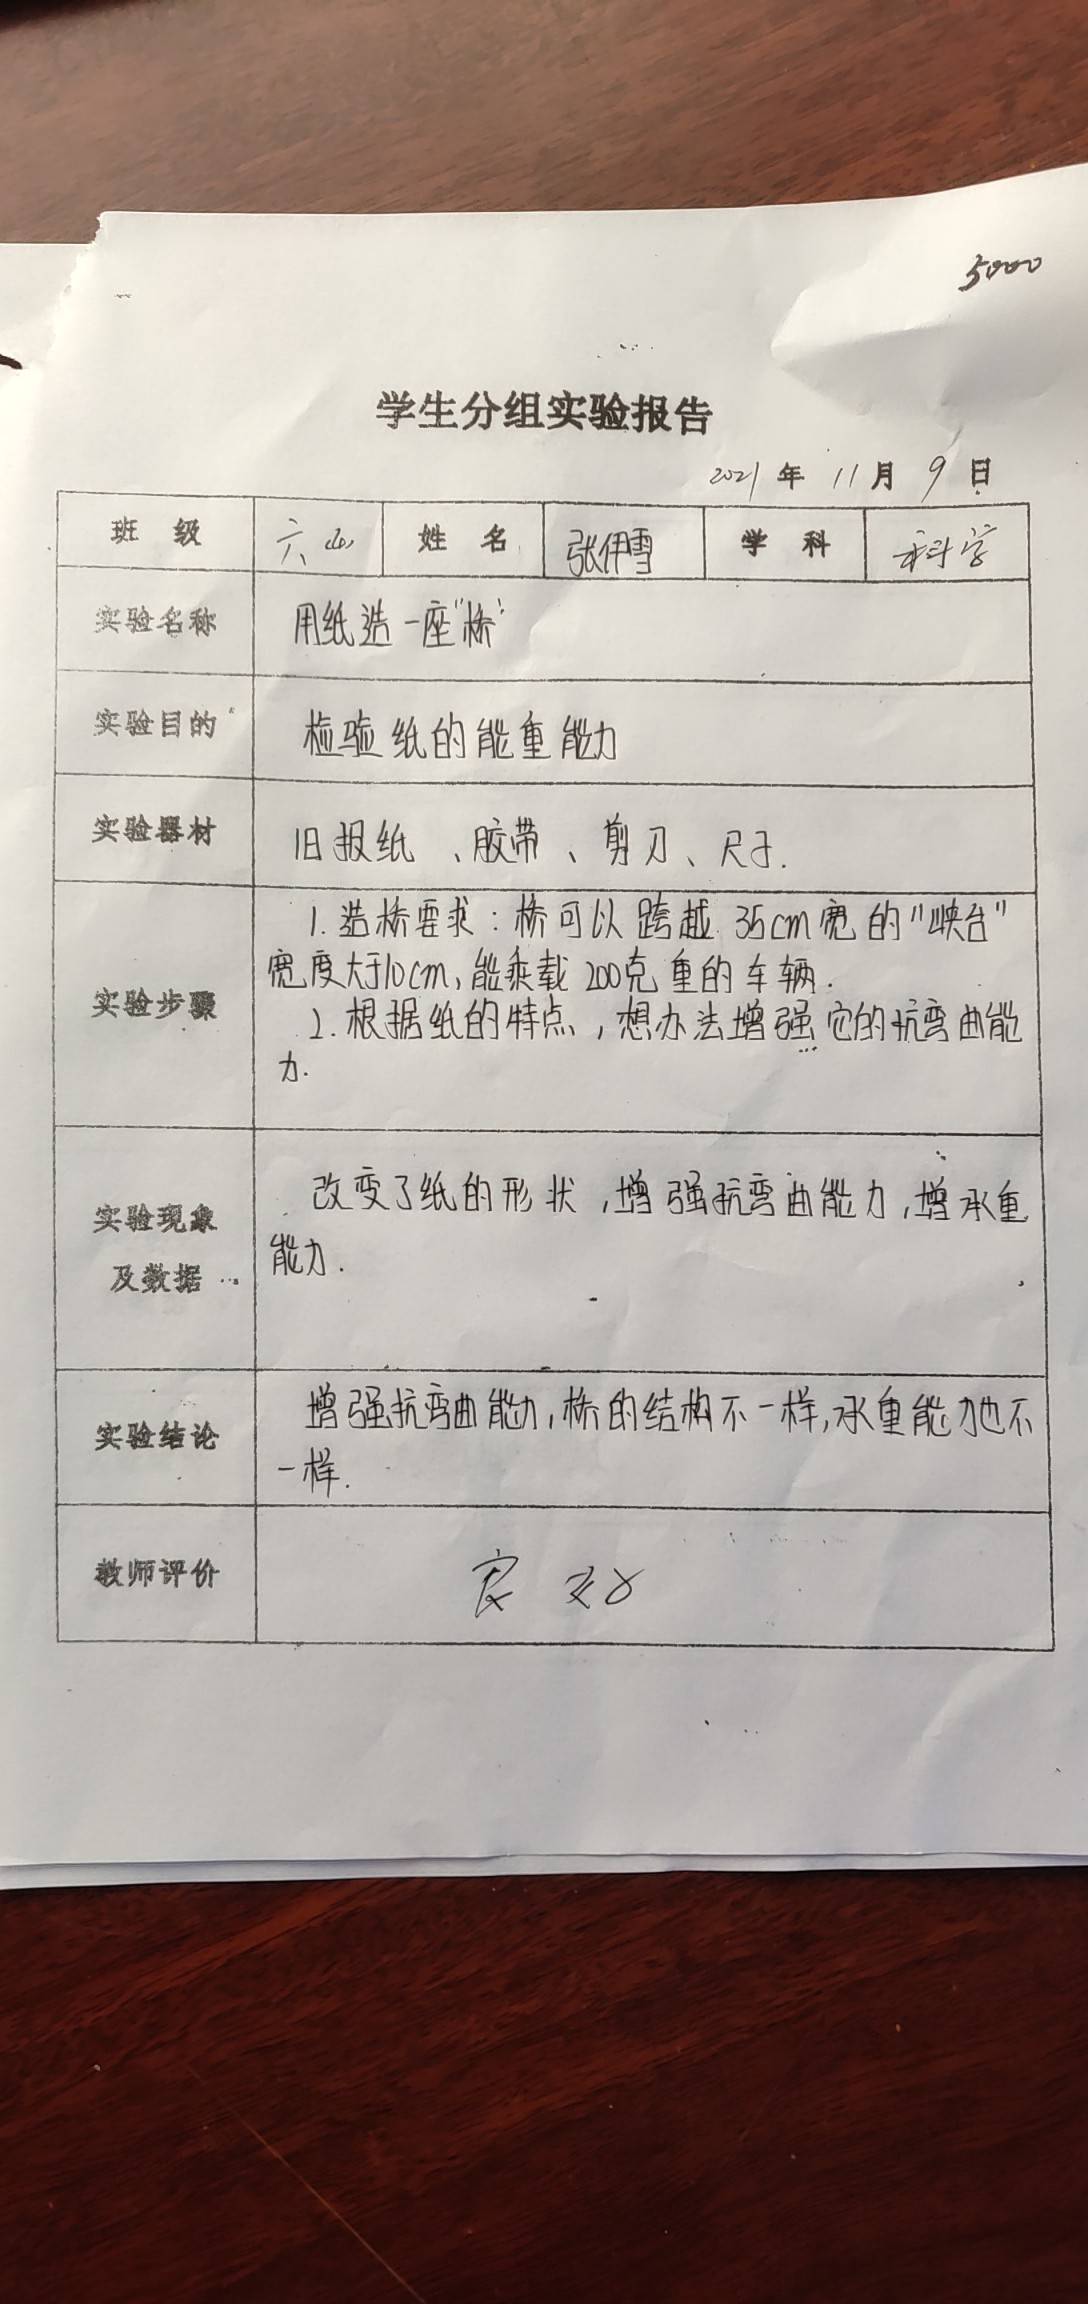 5000
学生分组实验报告
2021年11月9日
班级 六 姓名 张伊雪 学科 科学
实验名称 用纸造一座"桥"
实验目的 检验纸的能重能力
实验器材 旧报纸、胶带、剪刀、尺子.
实验步骤
1.造桥要求:桥可以跨越35cm宽的"峡台"
宽度大于10cm,能乘载200克重的车辆.
2.根据纸的特点,想办法增强它的抗弯曲能
力.
实验现象
及数据
改变了纸的形状,增强抗弯曲能力,增承重
能力.
实验结论
增强抗弯曲能力,桥的结构不一样,承重能力也不
一样.
教师评价 良好